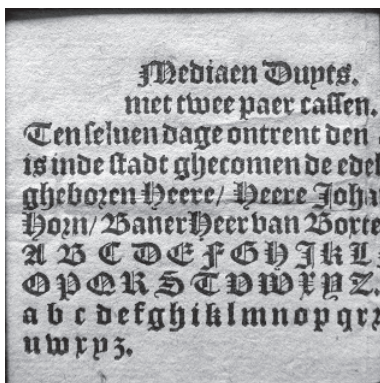 Mediaen Duyts.
met twee paer cassen.
Ten seluen dage ontrent den
is inde stadt ghecomen de edel
gheboren Heere/ Heere Joha
Horn/ Baner Heer van Boxte
A B C D E F G H J K L
O P Q R S T V W X Y Z.
a b c d e f g h i k l m n o p q r z
u w x y z.